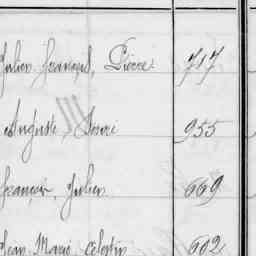 Julien François, Pierre 717
Auguste, Désiré 955
François, Julien 669
Jean Marie Célestin 602